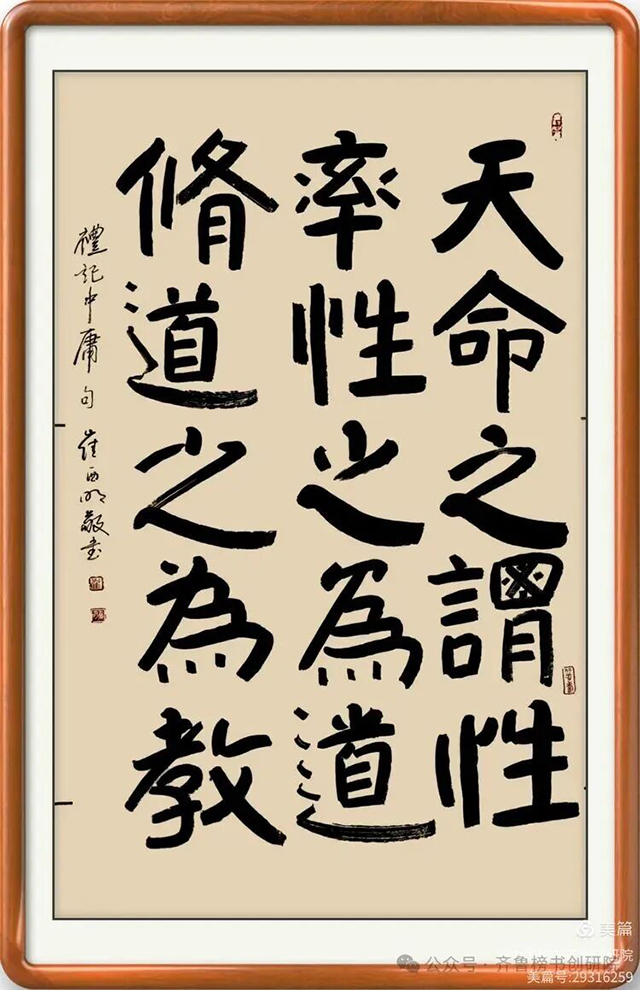 天命之謂性
率性之為道
脩道之為教
禮記中庸句 崔西明敬書
美篇
公众号 · 齐鲁榜书创研院
美篇号:29316259